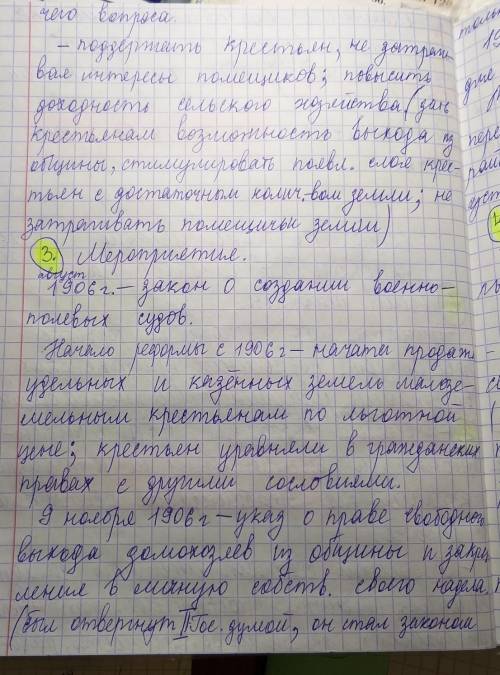 чего вопроса.
- поддержать крестьян, не затраги-
вая интересы помещиков; повысить
доходность сельского хозяйства (дав
крестьянам возможность выхода из
общины, стимулировать появл. слоя крес-
тьян с достаточным колич.вом земли; не
затрагивать помещичьи земли)
3. Мероприятия.
август
1906 г. - закон о создании военно-
полевых судов.
Начало реформы с 1906 г - начаты продажи
удельных и казённых земель малозе-
мельным крестьянам по льготной
цене; крестьян уравняли в гражданских
правах с другими сословиями.
9 ноября 1906 г - указ о праве свободного
выхода домохозяев из общины и закре
ления в личную собств. своего надела
(был отвергнут II Гос. думой, он стал законом